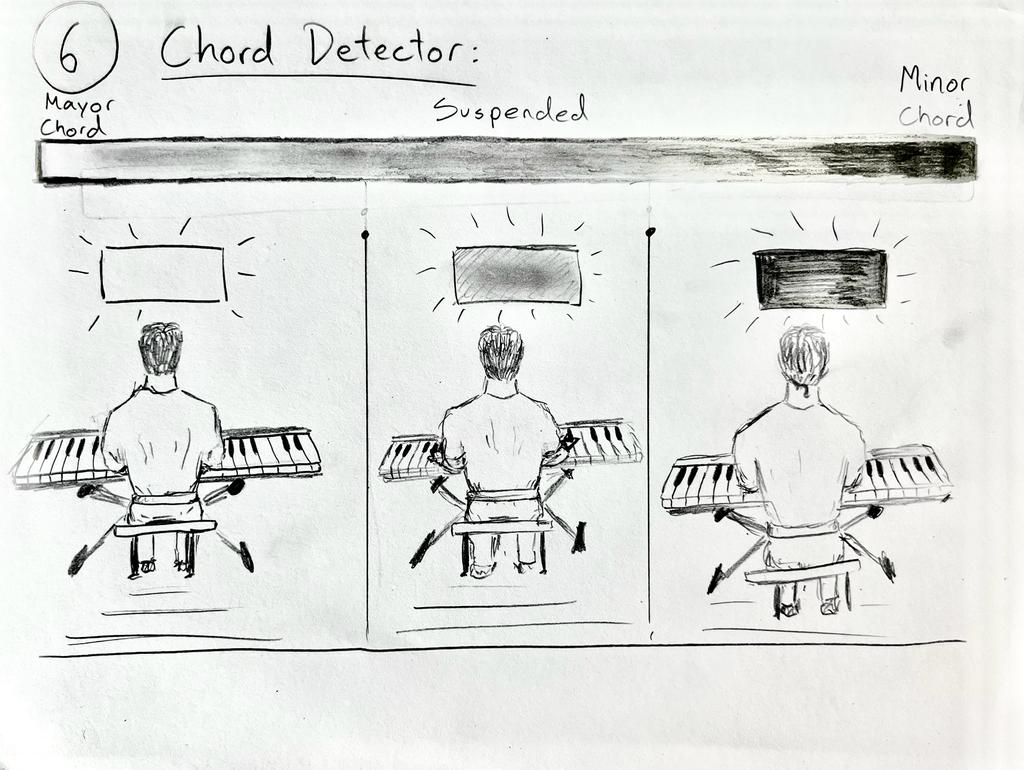 6
Chord Detector:
Mayor
Chord
Suspended
Minor
Chord